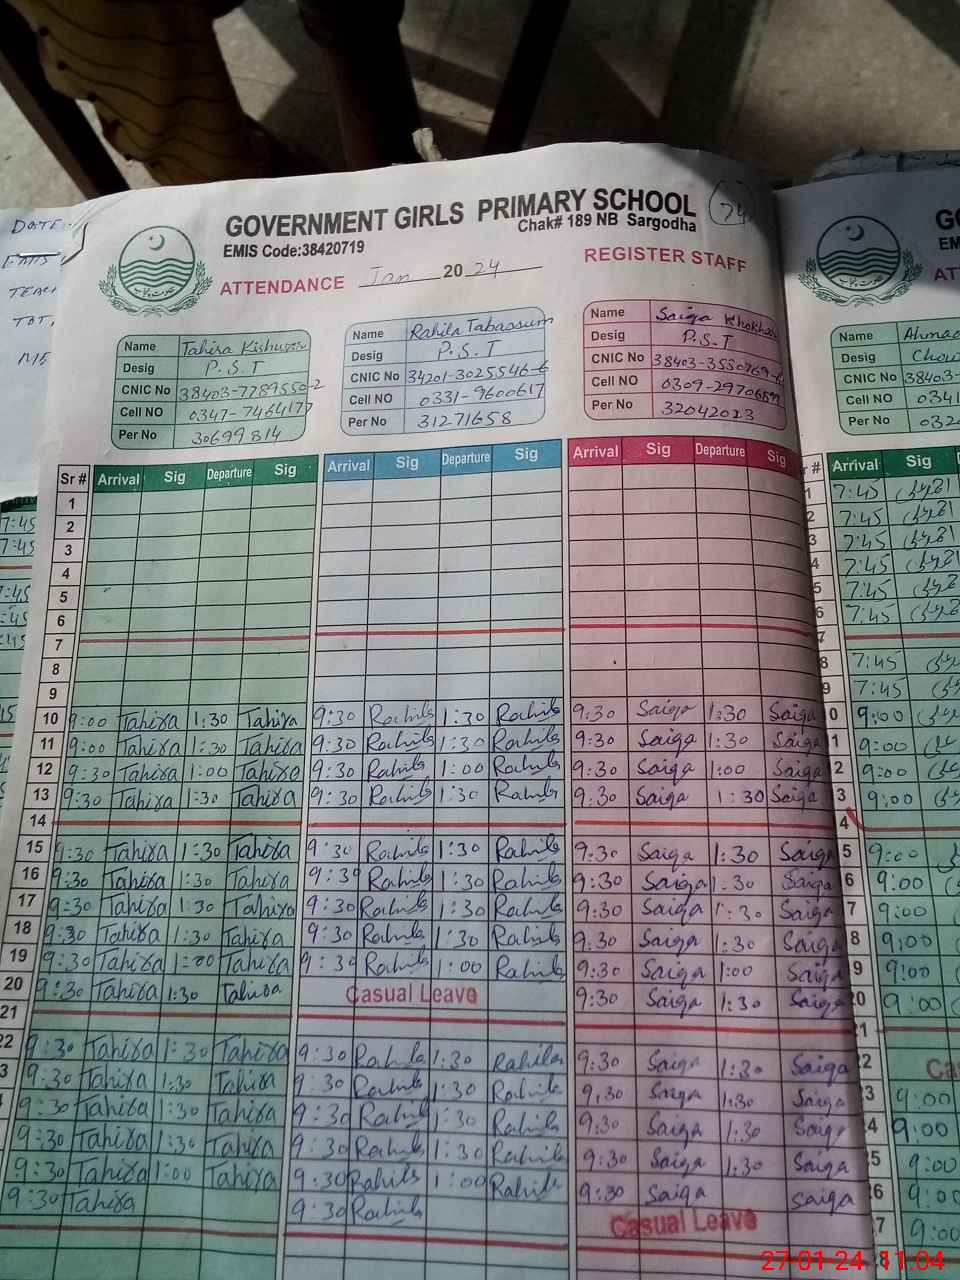 GOVERNMENT GIRLS PRIMARY SCHOOL 74
EMIS Code:38420719 Chak# 189 NB Sargodha
ATTENDANCE Jan 20 24 REGISTER STAFF
DATE:
EMIS
Name Tahira Kishwar
Desig P.S.T
CNIC No 38403-7789550-2
Cell NO 0347-7464177
Per No 30699814
Name Rahila Tabassum
Desig P.S.T
CNIC No 34201-3025546-6
Cell NO 0331-9600617
Per No 31271658
Name Saiqa Khokhar
Desig P.S.T
CNIC No 38403-3550769-
Cell NO 0309-29706
Per No 32042023
Name Ahmad
Desig Chow
CNIC No 38403-
Cell NO 0341
Per No 032
Sr # Arrival Sig Departure Sig Arrival Sig Departure Sig Arrival Sig Departure Sig Arrival Sig
1 7:45
2 7:45
3 7:45
4 7:45
5 7:45
6 7:45
7
8 7:45
9 7:45
10 9:00 Tahira 1:30 Tahira 9:30 Rahila 1:30 Rahila 9:30 Saiqa 1:30 Saiqa 9:00
11 9:00 Tahira 1:30 Tahira 9:30 Rahila 1:30 Rahila 9:30 Saiqa 1:30 Saiqa 9:00
12 9:30 Tahira 1:00 Tahira 9:30 Rahila 1:00 Rahila 9:30 Saiqa 1:00 Saiqa 9:00
13 9:30 Tahira 1:30 Tahira 9:30 Rahila 1:30 Rahila 9:30 Saiqa 1:30 Saiqa 9:00
14
15 9:30 Tahira 1:30 Tahira 9:30 Rahila 1:30 Rahila 9:30 Saiqa 1:30 Saiqa 9:00
16 9:30 Tahira 1:30 Tahira 9:30 Rahila 1:30 Rahila 9:30 Saiqa 1:30 Saiqa 9:00
17 9:30 Tahira 1:30 Tahira 9:30 Rahila 1:30 Rahila 9:30 Saiqa 1:30 Saiqa 9:00
18 9:30 Tahira 1:30 Tahira 9:30 Rahila 1:30 Rahila 9:30 Saiqa 1:30 Saiqa 9:00
19 9:30 Tahira 1:00 Tahira 9:30 Rahila 1:00 Rahila 9:30 Saiqa 1:00 Saiqa 9:00
20 9:30 Tahira 1:30 Tahira Casual Leave 9:30 Saiqa 1:30 Saiqa 9:00
21
22 9:30 Tahira 1:30 Tahira 9:30 Rahila 1:30 Rahila 9:30 Saiqa 1:30 Saiqa
3 9:30 Tahira 1:30 Tahira 9:30 Rahila 1:30 Rahila 9:30 Saiqa 1:30 Saiqa 9:00
9:30 Tahira 1:30 Tahira 9:30 Rahila 1:30 Rahila 9:30 Saiqa 1:30 Saiqa 9:00
9:30 Tahira 1:30 Tahira 9:30 Rahila 1:30 Rahila 9:30 Saiqa 1:30 Saiqa 9:00
9:30 Tahira 1:00 Tahira 9:30 Rahila 1:00 Rahila 9:30 Saiqa Saiqa 9:00
9:30 Tahira 9:30 Rahila Casual Leave 9:00
27-01-24 11:04